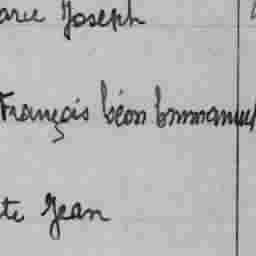 arie Joseph
François Léon Emmanuel
te Jean